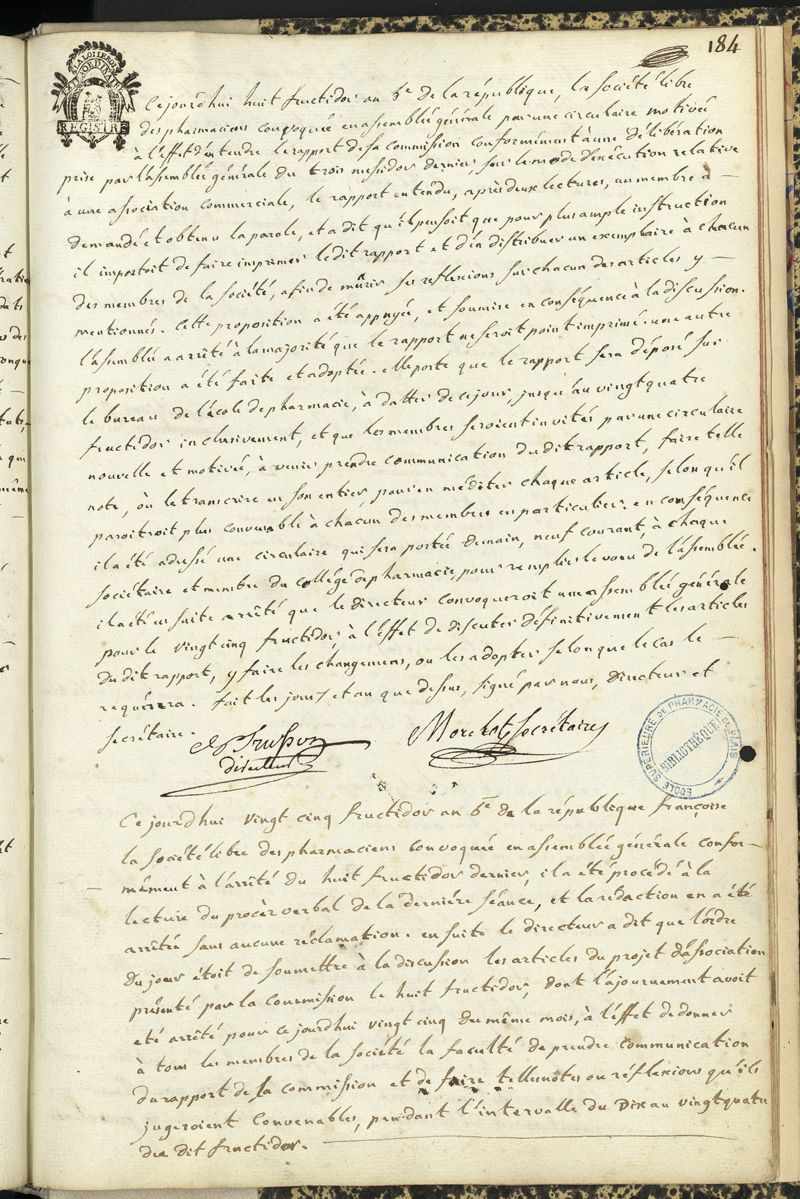 184
A LA LOI LE ROI
EXTRAORDINAIRE
REGISTRE
Cejourd'hui huit fructidor an 6e de la république, la Société libre
des pharmaciens convoquée en assemblée générale par une circulaire motivée
à l'effet d'entendre le rapport de sa commission conformément à une délibération
prise par l'assemblée générale du trois messidor dernier, sur le mode d'exécution relative
à une association commerciale, le rapport entendu, après deux lectures, un membre a —
demandé et obtenu la parole, et a dit qu'il pensoit que pour plus ample instruction
il importoit de faire imprimer le dit rapport et d'en distribuer un exemplaire à chacun
des membres de la société, afin de mûrir ses reflexions sur chacun des articles y —
mentionnés. Cette proposition a été appuyée, et soumise en conséquence à la discussion.
l'assemblée a arrêté à la majorité que le rapport ne seroit point imprimé. une autre
proposition a été faite et adoptée. elle porte que le rapport sera déposé sur
le bureau de l'école de pharmacie, à datter de ce jour, jusqu'au vingt quatre
fructidor inclusivement, et que les membres seroient invités par une circulaire
nouvelle et motivée, à venir prendre communication du dit rapport, faire telle
note, ou le transcrire en son entier, pour en méditer chaque article, selon qu'il
paroitroit plus convenable à chacun des membres en particulier. en conséquence
il a été adressé une circulaire qui sera portée demain, neuf courant, à chaque
sociétaire et membre du collége de pharmacie, pour remplir le voeu de l'assemblée.
il a été en suite arrêté que le directeur convoqueroit une assemblée générale
pour le vingt cinq fructidor, à l'effet de discuter définitivement les articles
du dit rapport, y faire les changemens, ou les adopter selon que le cas le —
requérrera. fait les jour et an que dessus, signé par nous, Directeur et
secrétaire.
Trusson
directeur
Morelot Secrétaire
ECOLE SUPÉRIEURE DE PHARMACIE DE PARIS
BIBLIOTHÈQUE
Ce jourd'hui vingt cinq fructidor an 6e de la république françoise
la Société libre des pharmaciens convoquée en assemblée générale confor—
mément à l'arrêté du huit fructidor dernier, il a été procédé à la
lecture du procès verbal de la dernière séance, et la rédaction en a été
arrêtée sans aucune réclamation. en suite le directeur a dit que l'ordre
du jour étoit de soumettre à la discussion les articles du projet d'association
présenté par la Commission le huit fructidor, dont l'ajournement avoit
été arrêté pour ce jourd'hui vingt cinq du même mois, à l'effet de donner
à tous les membres de la société la faculté de prendre communication
du rapport de la commission et de faire telles notes ou réflexions qu'ils
jugeroient convenables, pendant l'intervalle du Dix au vingt quatre
du dit fructidor.